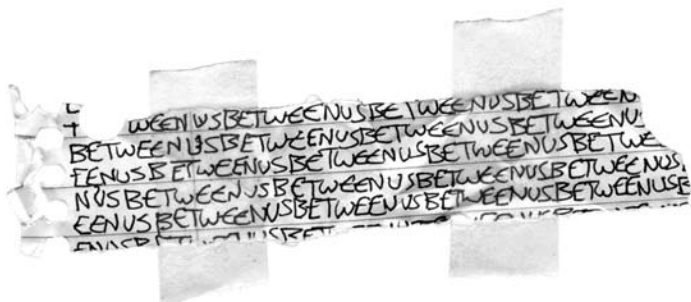 WEENUSBETWEENUSBETWEENUSBETWEEN
BETWEENUSBETWEENUSBETWEENUSBETWEENU
EENUSBETWEENUSBETWEENUSBETWEENUSBETWE
NUSBETWEENUSBETWEENUSBETWEENUSBETWEENUS
EENUSBETWEENUSBETWEENUSBETWEENUSBETWEENUSB
EENUSBET